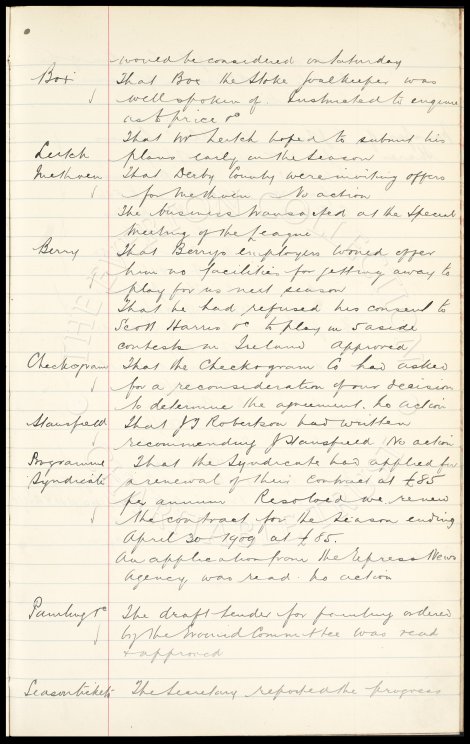 would be considered on Saturday
Box That Box the Stoke Goalkeeper was
well spoken of. Instructed to enquire
as to price &c
That Mr Leitch hoped to submit his
Leitch plans early in the Season
Methven That Derby County were inviting offers
for Methven No action
The business transacted at the Special
Meeting of the League
Berry That Berrys employers would offer
him no facilities for getting away to
play for us next season
That he had refused his consent to
Scott Harris &c to play in 5 aside
contests in Ireland approved
Checkogram That the Checkogram Co had asked
for a reconsideration of our decision
to determine the agreement. No action
Stansfield That JT Robertson had written
recommending J Stansfield No action
Programme That the Syndicate had applied for
Syndicate a renewal of their contract at £85
per annum Resolved we renew
the contract for the Season ending
April 30 1909 at £85.
An application from the Express News
Agency was read. No action
Painting &c The draft tender for painting ordered
by the Ground Committee was read
& approved
Season tickets The Secretary reported the progress